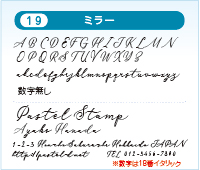 19 ミラー
A B C D E F G H I J K L M N
O P Q R S T U V W X Y Z
abcdefghijklmnopqrstuvwxyz
数字無し
Pastel Stamp
Ayako Harada
1-2-3 Honcho Sakurashi Hokkaido JAPAN
http://pastel-st.net TEL 012-3456-7890
※数字は18番イタリック